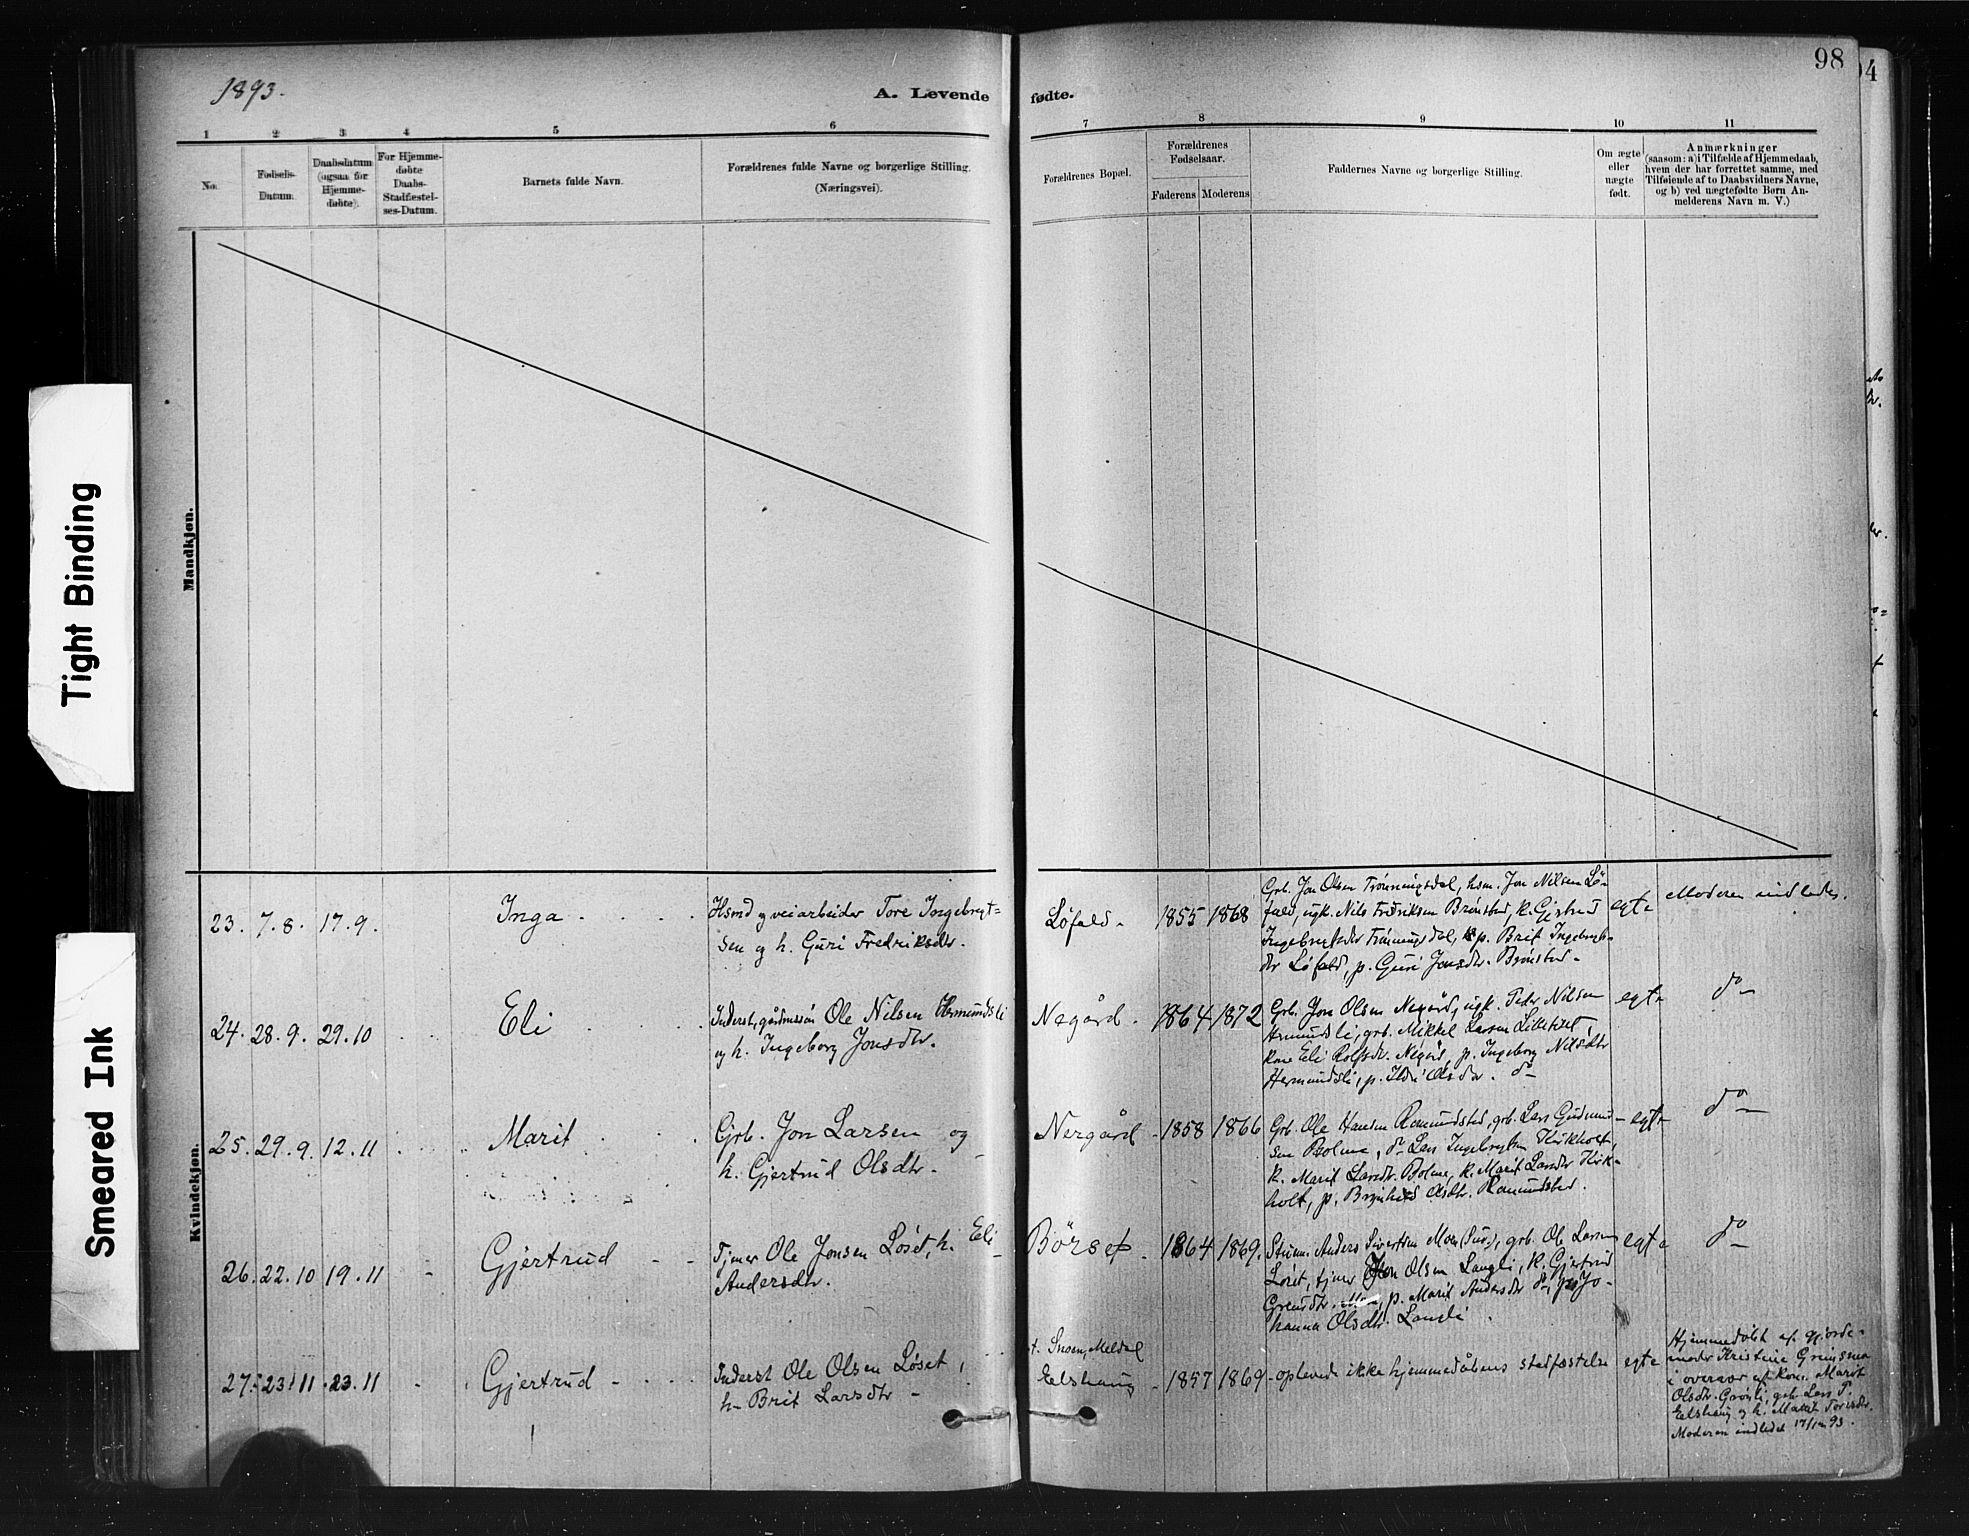 98
94
1893.
A. Levende
fødte.
1 2 3 4 5 6
7 8 9 10 11
No.
Fødsels-
Datum.
Daabsdatum
(ogsaa for
Hjemme-
døbte).
For Hjemme-
døbte
Daabs-
Stadfæstel-
ses-Datum.
Barnets fulde Navn.
Forældrenes fulde Navne og borgerlige Stilling.
(Næringsvei).
Forældrenes Bopæl.
Forældrenes
Fødselsaar.
Faderens Moderens
Faddernes Navne og borgerlige Stilling.
Om ægte
eller
nægte
født.
Anmærkninger
(saasom: a) i Tilfælde af Hjemmedaab,
hvem der har forrettet samme, med
Tilføiende af to Daabsvidners Navne,
og b) ved nægtefødte Børn An-
melderens Navn m. V.)
Mandkjøn.
Tight Binding
Smeared Ink
Kvindekjøn.
23. 7.8. 17.9.
Inga
Hsmd og veiarbeider Tore Ingebrygt=
sen og h. Guri Fredriksdtr.
Løfald.
1855 1868
Grb. Jon Olsen Trønningsdal, hsm. Jon Nilsen Lø-
fald, ugk. Nils Fredriksen Brønstad, k. Gjertrud
Ingebrygtsdtr Trønningsdal, p. Brit Ingebrygts-
dtr Løfald, p. Guri Jonsdtr. Brønstad.
egte
Moderen indledet.
24. 28.9. 29.10
Eli
Inderst, gårdmssøn Ole Nilsen Hermundsli
og h. Ingeborg Jonsdtr.
Negård.
1864 1872
Grb. Jon Olsen Negård, ugk. Peder Nilsen
Hermundsli, grb. Mikkel Larsen
kone Eli Rolfsdtr. Negård, p. Ingeborg Nilsdtr
Hermundsli, p. Ildri Olsdtr. do
egte
do
25. 29.9. 12.11
Marit
Grb. Jon Larsen og
h. Gjertrud Olsdtr.
Nergård
1858 1866
Grb. Ole Hansen Romundstad, grb. Lars Gudmund-
sen Bolme, do Lars Ingebrygtsen Kirkholt,
k. Marit Larsdtr. Bolme, k. Marit Larsdtr Kirk-
holt, p. Brynhild Olsdtr. Romundstad.
egte
do
26. 22.10 19.11
Gjertrud
Tjener Ole Jonsen Løset, h. Eli
Andersdtr.
Börset
1864 1869.
Anders Sivertsen Moen, grb. Ole Larsen
Løset, tjener Jon Olsen Langli, k. Gjertrud
p. Marit Andersdtr do, p. Jo-
hanna Olsdtr. Langli.
egte
do
27. 23.11 23.11
Gjertrud
Inderst Ole Olsen Løset,
h. Brit Larsdtr
t. Snoen, Meldal
Elshaug
1857 1869
oplevede ikke hjemmedåbens stadfæstelse
egte
Hjemmedøbt af gjorde-
moder Kristine Grimsmo
i overvær af kone Marit
Olsdtr. Grønli, grb. Lars P.
Elshaug og h. Marit Toresdtr.
Moderen indledet 17/12 93.